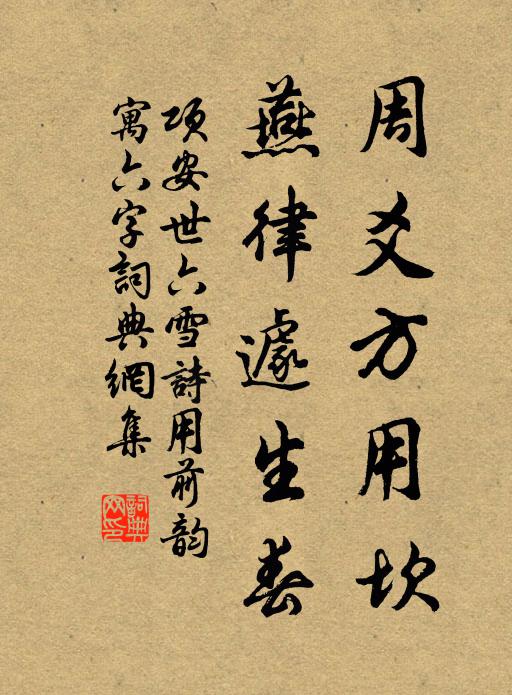 周爻方用坎
燕律遽生春
项安世六雪詩用前韵
寓六字詞典網集
詞典
网印